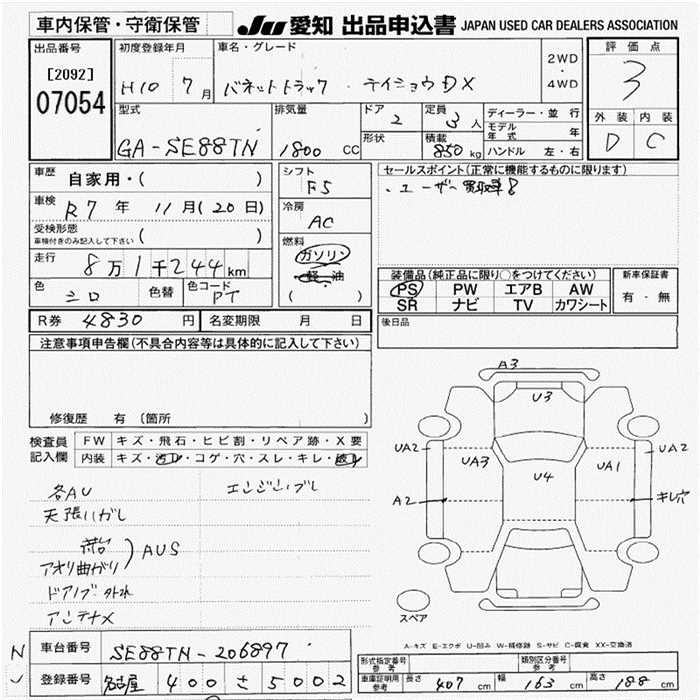 車内保管・守衛保管
JU 愛知 出品申込書 JAPAN USED CAR DEALERS ASSOCIATION
出品番号
[2092]
07054
初度登録年月
H10 7月
車名・グレード
バネットトラック ・ テイショウDX
2WD
・
4WD
評価点
3
外装 内装
D C
型式
GA-SE88TN
排気量
1800 CC
ドア
2
定員
3 人
形状
積載
850 kg
ディーラー・並行
モデル年式 年
ハンドル 左・右
車歴
自家用・( )
車検
R7 年 11月(20日)
受検形態
車検付きのみ記入して下さい ( )
走行
8万1千244km
色
シロ
色替
色コード
PT
シフト
F5
冷房
AC
燃料
ガソリン・
軽・油
( )
セールスポイント(正常に機能するものに限ります)
・ユーザー買取車
装備品(純正品に限り○をつけてください)
PS PW エアB AW
SR ナビ TV カワシート
新車保証書
有・無
R券 4830 円
名変期限 月 日
後日品
注意事項申告欄(不具合内容等は具体的に記入して下さい)
修復歴 有 (箇所 )
検査員
記入欄
FW キズ・飛石・ヒビ割・リペア跡・X要
内装 キズ・汚れ・コゲ・穴・スレ・キレ・破れ
各AU
エンジンブレ
天張ハガレ
アオリ曲がり
AUS
ドアノブ外れ
アンテナX
A3
U3
UA2
UA3
U4
UA1
UA2
A2
キレ穴
スペア
A-キズ E-エクボ U-凹み W-補修跡 S-サビ C-腐食 XX-交換済
車台番号
SE88TN-206897
登録番号
名古屋 400 さ 5002
形式指定番号
参考
類別区分番号
参考
車庫証明用
参考
長さ 407 cm
幅 163 cm
高さ 188 cm